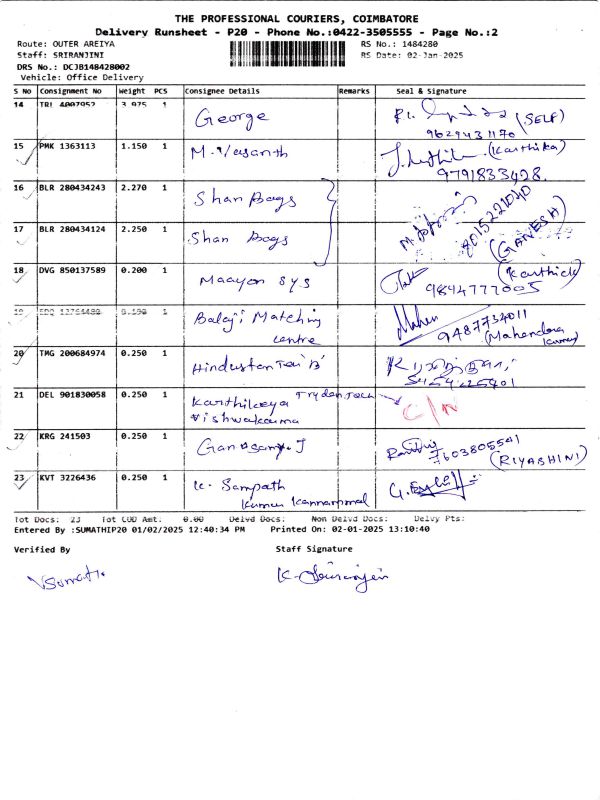 THE PROFESSIONAL COURIERS, COIMBATORE
Delivery Runsheet - P20 - Phone No.:0422-3505555 - Page No.:2
Route: OUTER AREIYA RS No.: 1484280
Staff: SRIRANJINI RS Date: 02-Jan-2025
DRS No.: DCJB148428002
Vehicle: Office Delivery
S No Consignment No Weight PCS Consignee Details Remarks Seal & Signature
14 TRL 4007952 3.975 1 George (SELF)
9629431170
15 PMK 1363113 1.150 1 M. Vasanth (Karthika)
9791833428
16 BLR 280434243 2.270 1 Shan Bags
8015221040
17 BLR 280434124 2.250 1 Shan Bags (GANESH)
18 DVG 850137589 0.200 1 Maayon Sys (Karthick)
9844777005
19 1 Balaji Matching Centre Mahen
9487734011
(Mahendra Kumar)
20 TMG 200684974 0.250 1
21 DEL 901830058 0.250 1 Karthikeya
Vishwakarma C/N
22 KRG 241503 0.250 1 7603805541
(RIYASHINI)
23 KVT 3226436 0.250 1 K. Sampath
Kumar
Tot Docs: 23 Tot COD Amt: 0.00 Delvd Docs: Non Delvd Docs: Delvy Pts:
Entered By :SUMATHIP20 01/02/2025 12:40:34 PM Printed On: 02-01-2025 13:10:40
Verified By Staff Signature